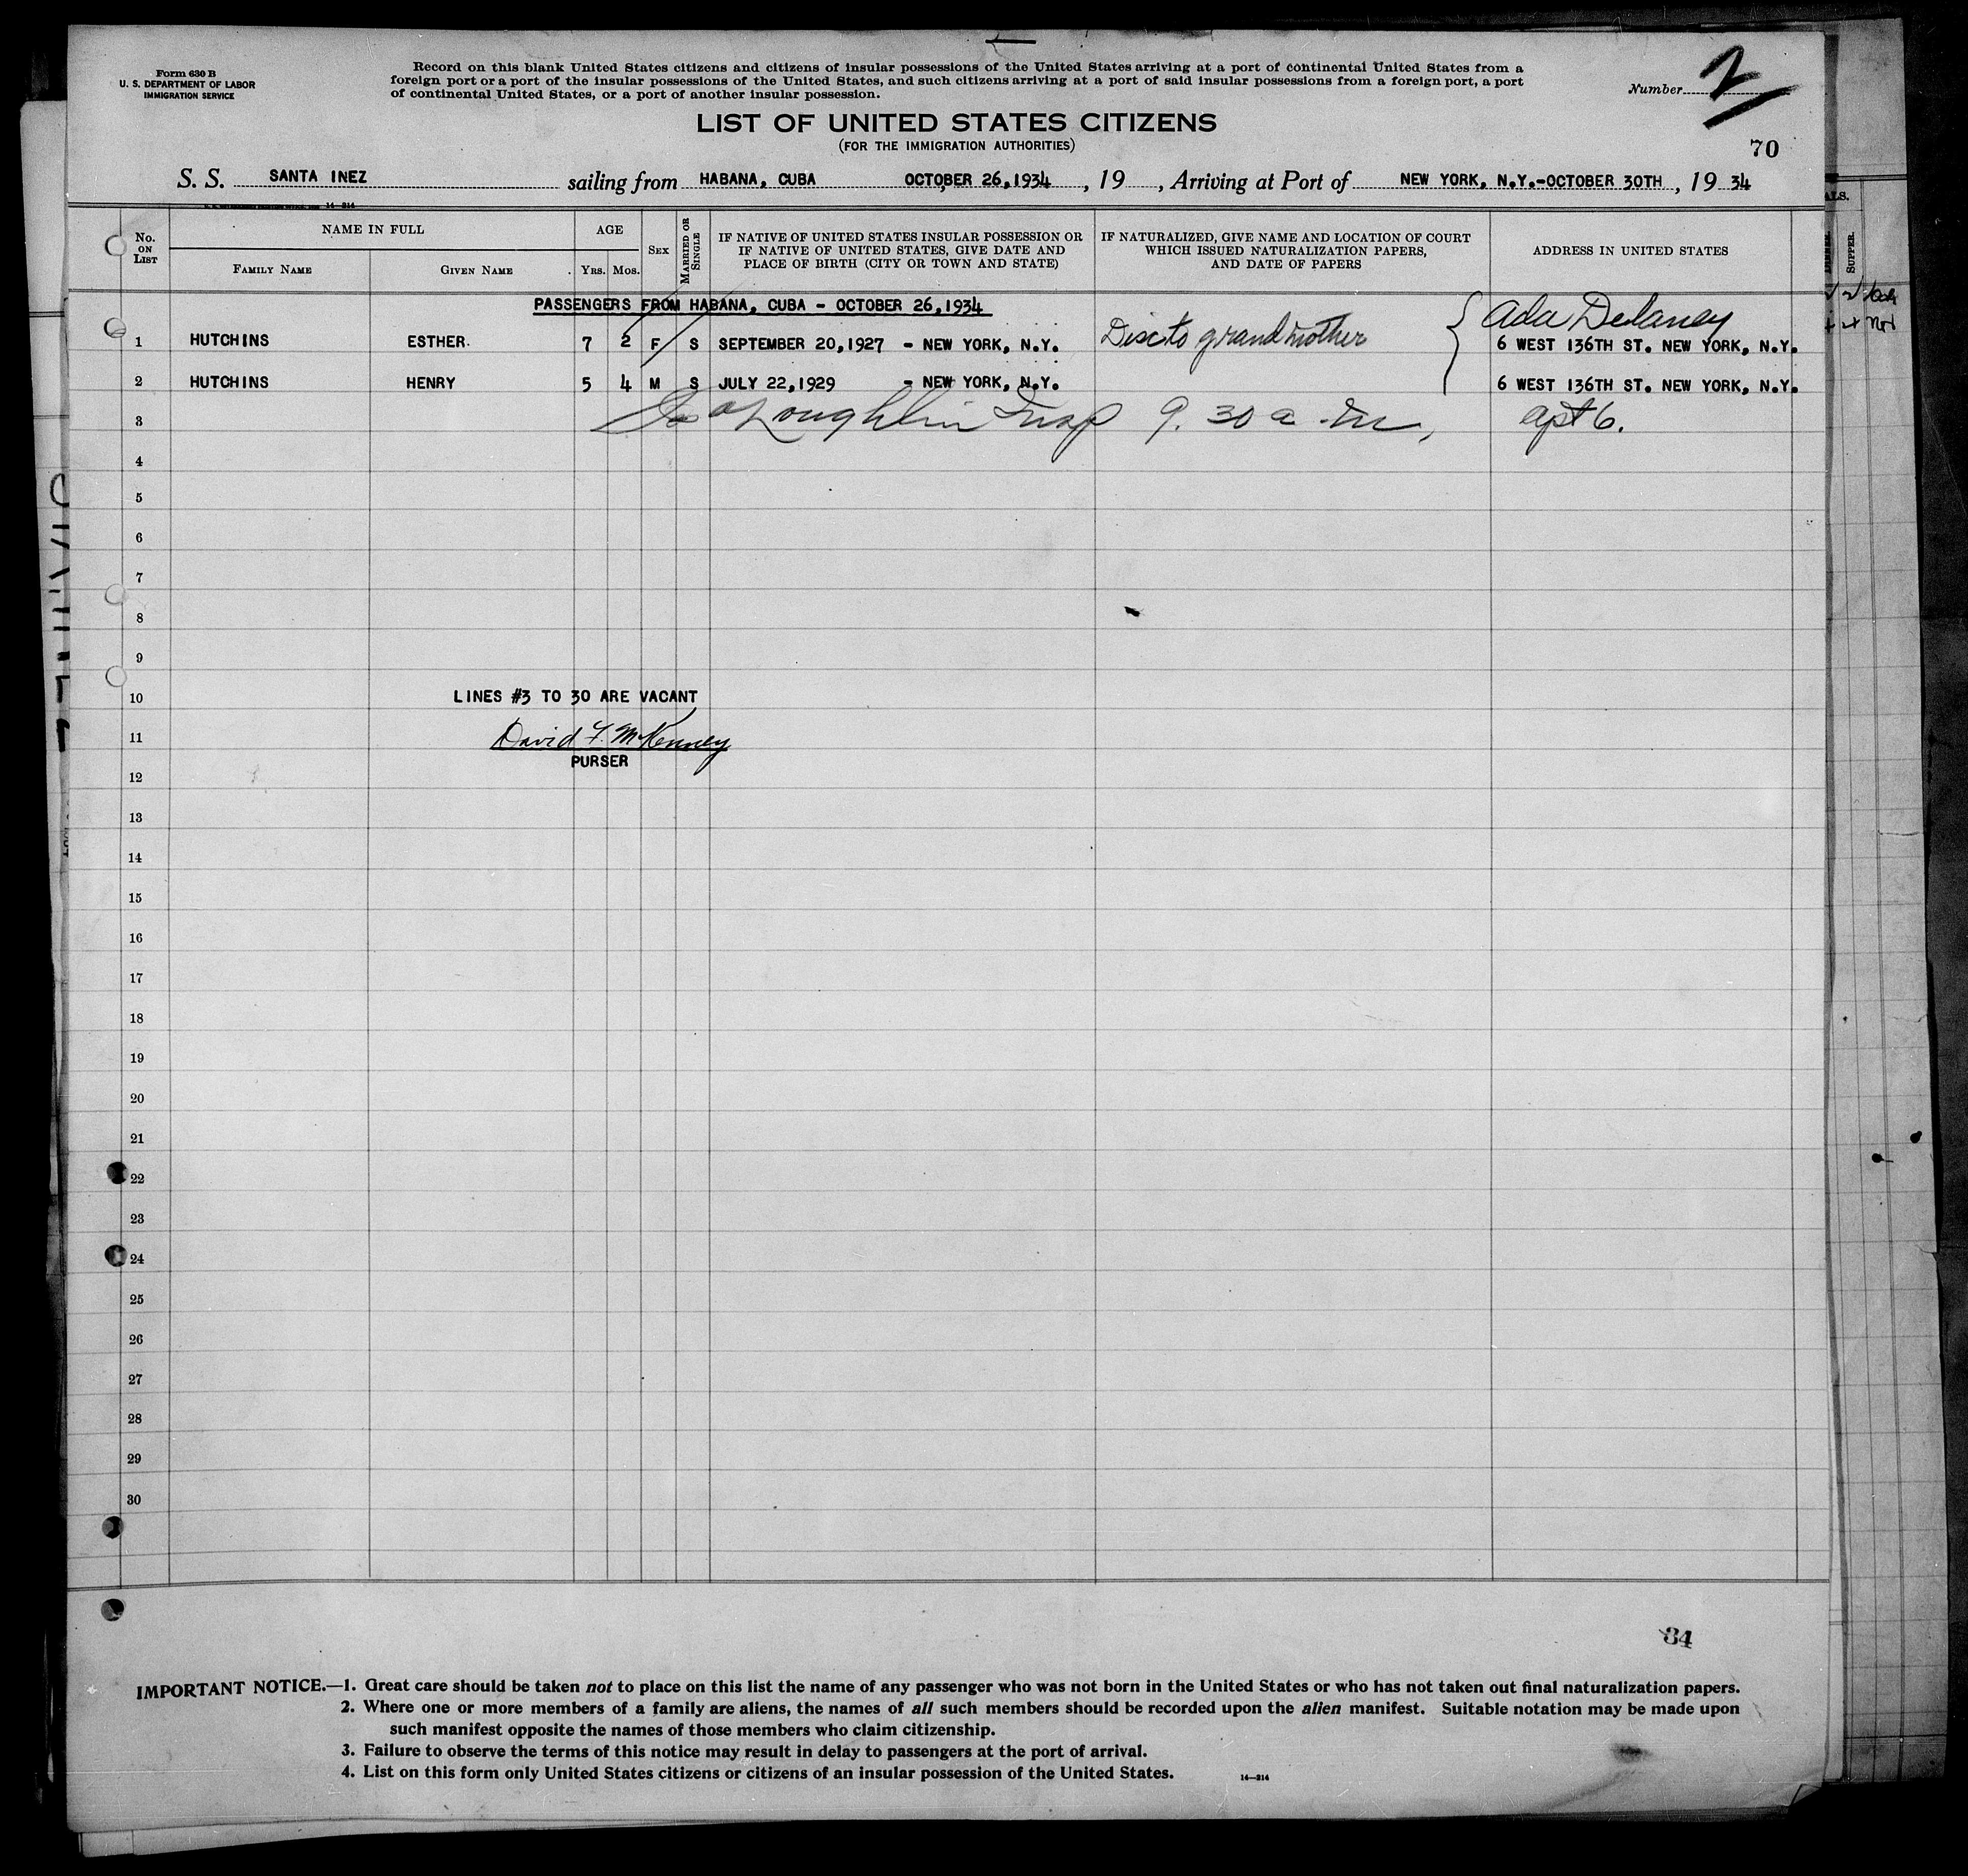 Form 630 B
U. S. DEPARTMENT OF LABOR
IMMIGRATION SERVICE
Record on this blank United States citizens and citizens of insular possessions of the United States arriving at a port of continental United States from a
foreign port or a port of the insular possessions of the United States, and such citizens arriving at a port of said insular possessions from a foreign port, a port
of continental United States, or a port of another insular possession.
Number 2
LIST OF UNITED STATES CITIZENS
(FOR THE IMMIGRATION AUTHORITIES)
70
S. S. SANTA INEZ sailing from HABANA, CUBA OCTOBER 26,1934, 19 , Arriving at Port of NEW YORK, N.Y.-OCTOBER 30TH, 19 34
14-214
ALS.
No. ON LIST
NAME IN FULL
FAMILY NAME
GIVEN NAME
AGE
YRS. MOS.
SEX
MARRIED OR SINGLE
IF NATIVE OF UNITED STATES INSULAR POSSESSION OR
IF NATIVE OF UNITED STATES, GIVE DATE AND
PLACE OF BIRTH (CITY OR TOWN AND STATE)
IF NATURALIZED, GIVE NAME AND LOCATION OF COURT
WHICH ISSUED NATURALIZATION PAPERS,
AND DATE OF PAPERS
ADDRESS IN UNITED STATES
SUPPER.
PASSENGERS FROM HABANA, CUBA - OCTOBER 26,1934
Ada Delaney
1 HUTCHINS ESTHER. 7 2 F S SEPTEMBER 20,1927 - NEW YORK, N.Y. Disc to grandmother 6 WEST 136TH ST. NEW YORK, N.Y.
2 HUTCHINS HENRY 5 4 M S JULY 22,1929 - NEW YORK, N.Y. 6 WEST 136TH ST. NEW YORK, N.Y.
3 O'Loughlin Insp 9.30 a.m. apt 6.
4
5
6
7
8
9
10 LINES #3 TO 30 ARE VACANT
11 David F. McKenney
PURSER
12
13
14
15
16
17
18
19
20
21
22
23
24
25
26
27
28
29
30
34
IMPORTANT NOTICE.—1. Great care should be taken not to place on this list the name of any passenger who was not born in the United States or who has not taken out final naturalization papers.
2. Where one or more members of a family are aliens, the names of all such members should be recorded upon the alien manifest. Suitable notation may be made upon
such manifest opposite the names of those members who claim citizenship.
3. Failure to observe the terms of this notice may result in delay to passengers at the port of arrival.
4. List on this form only United States citizens or citizens of an insular possession of the United States.
14—214